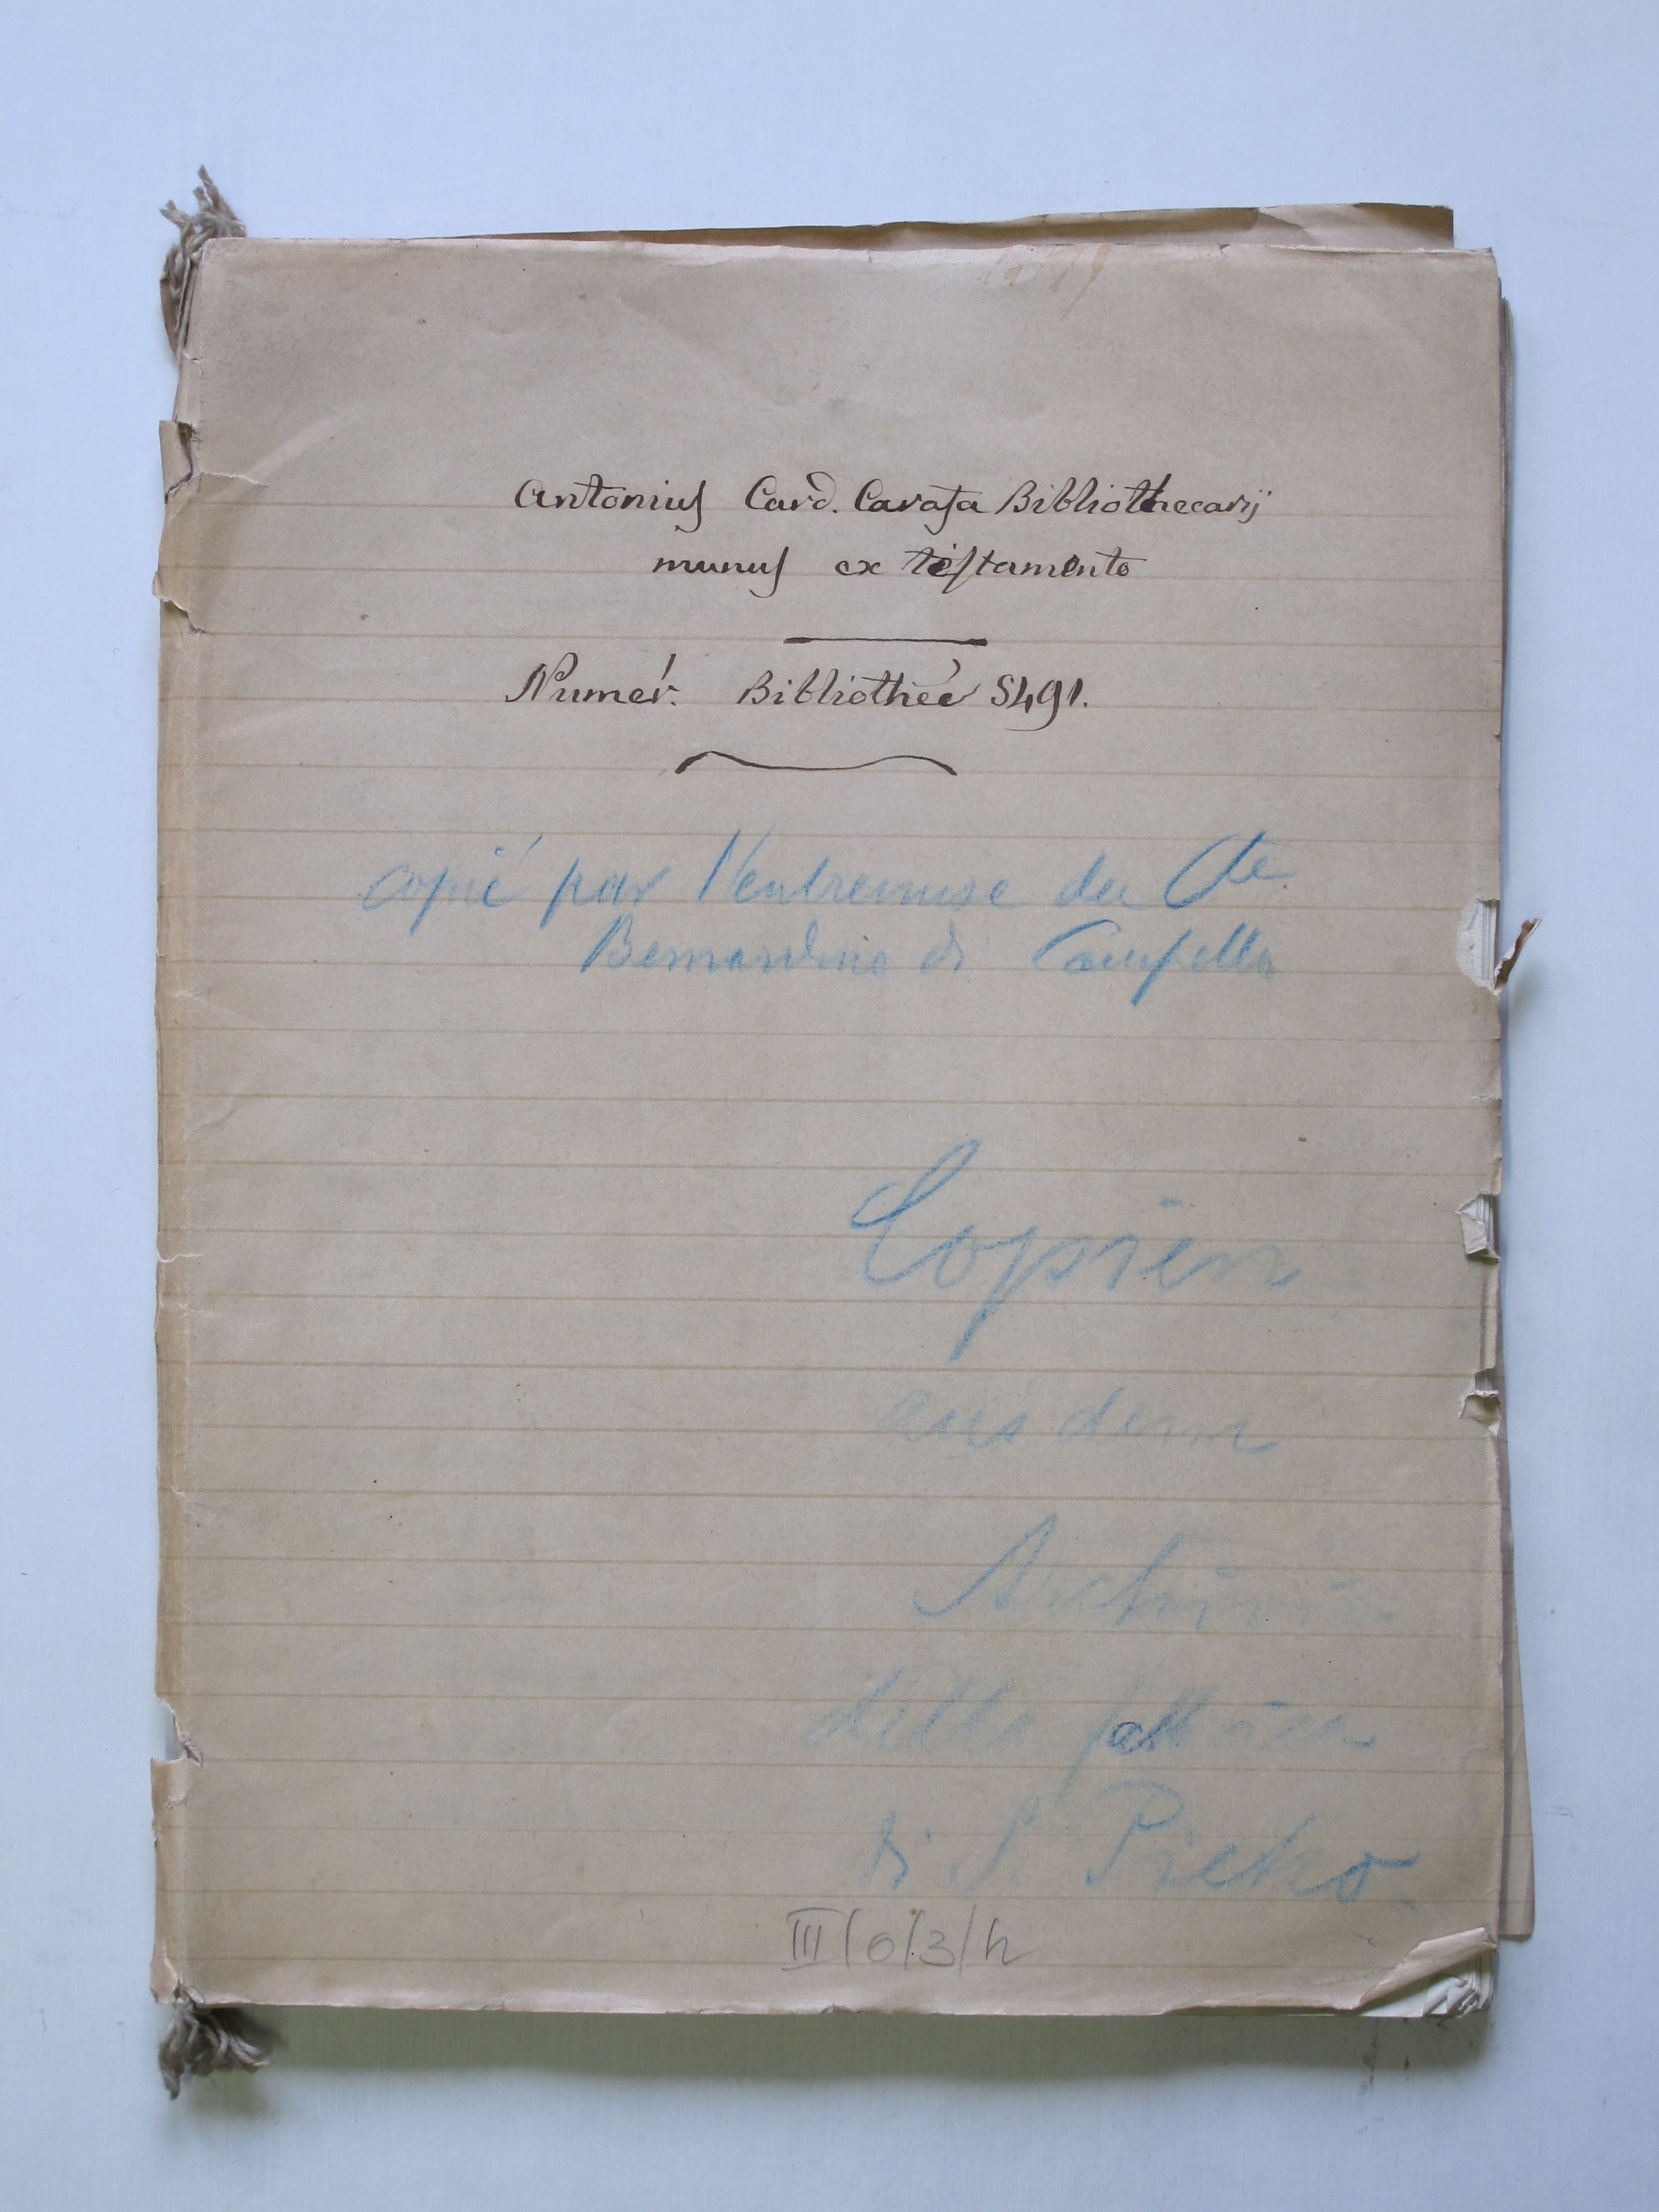 Antonius Card. Carafa Bibliothecarij
munus ex testamento
Numer. Bibliothec 5491.
copié par l'entremise du Cte
Bernardino di Campello
Copien
aus dem
Archivio
della
di S. Pietro.
III/o/3/h